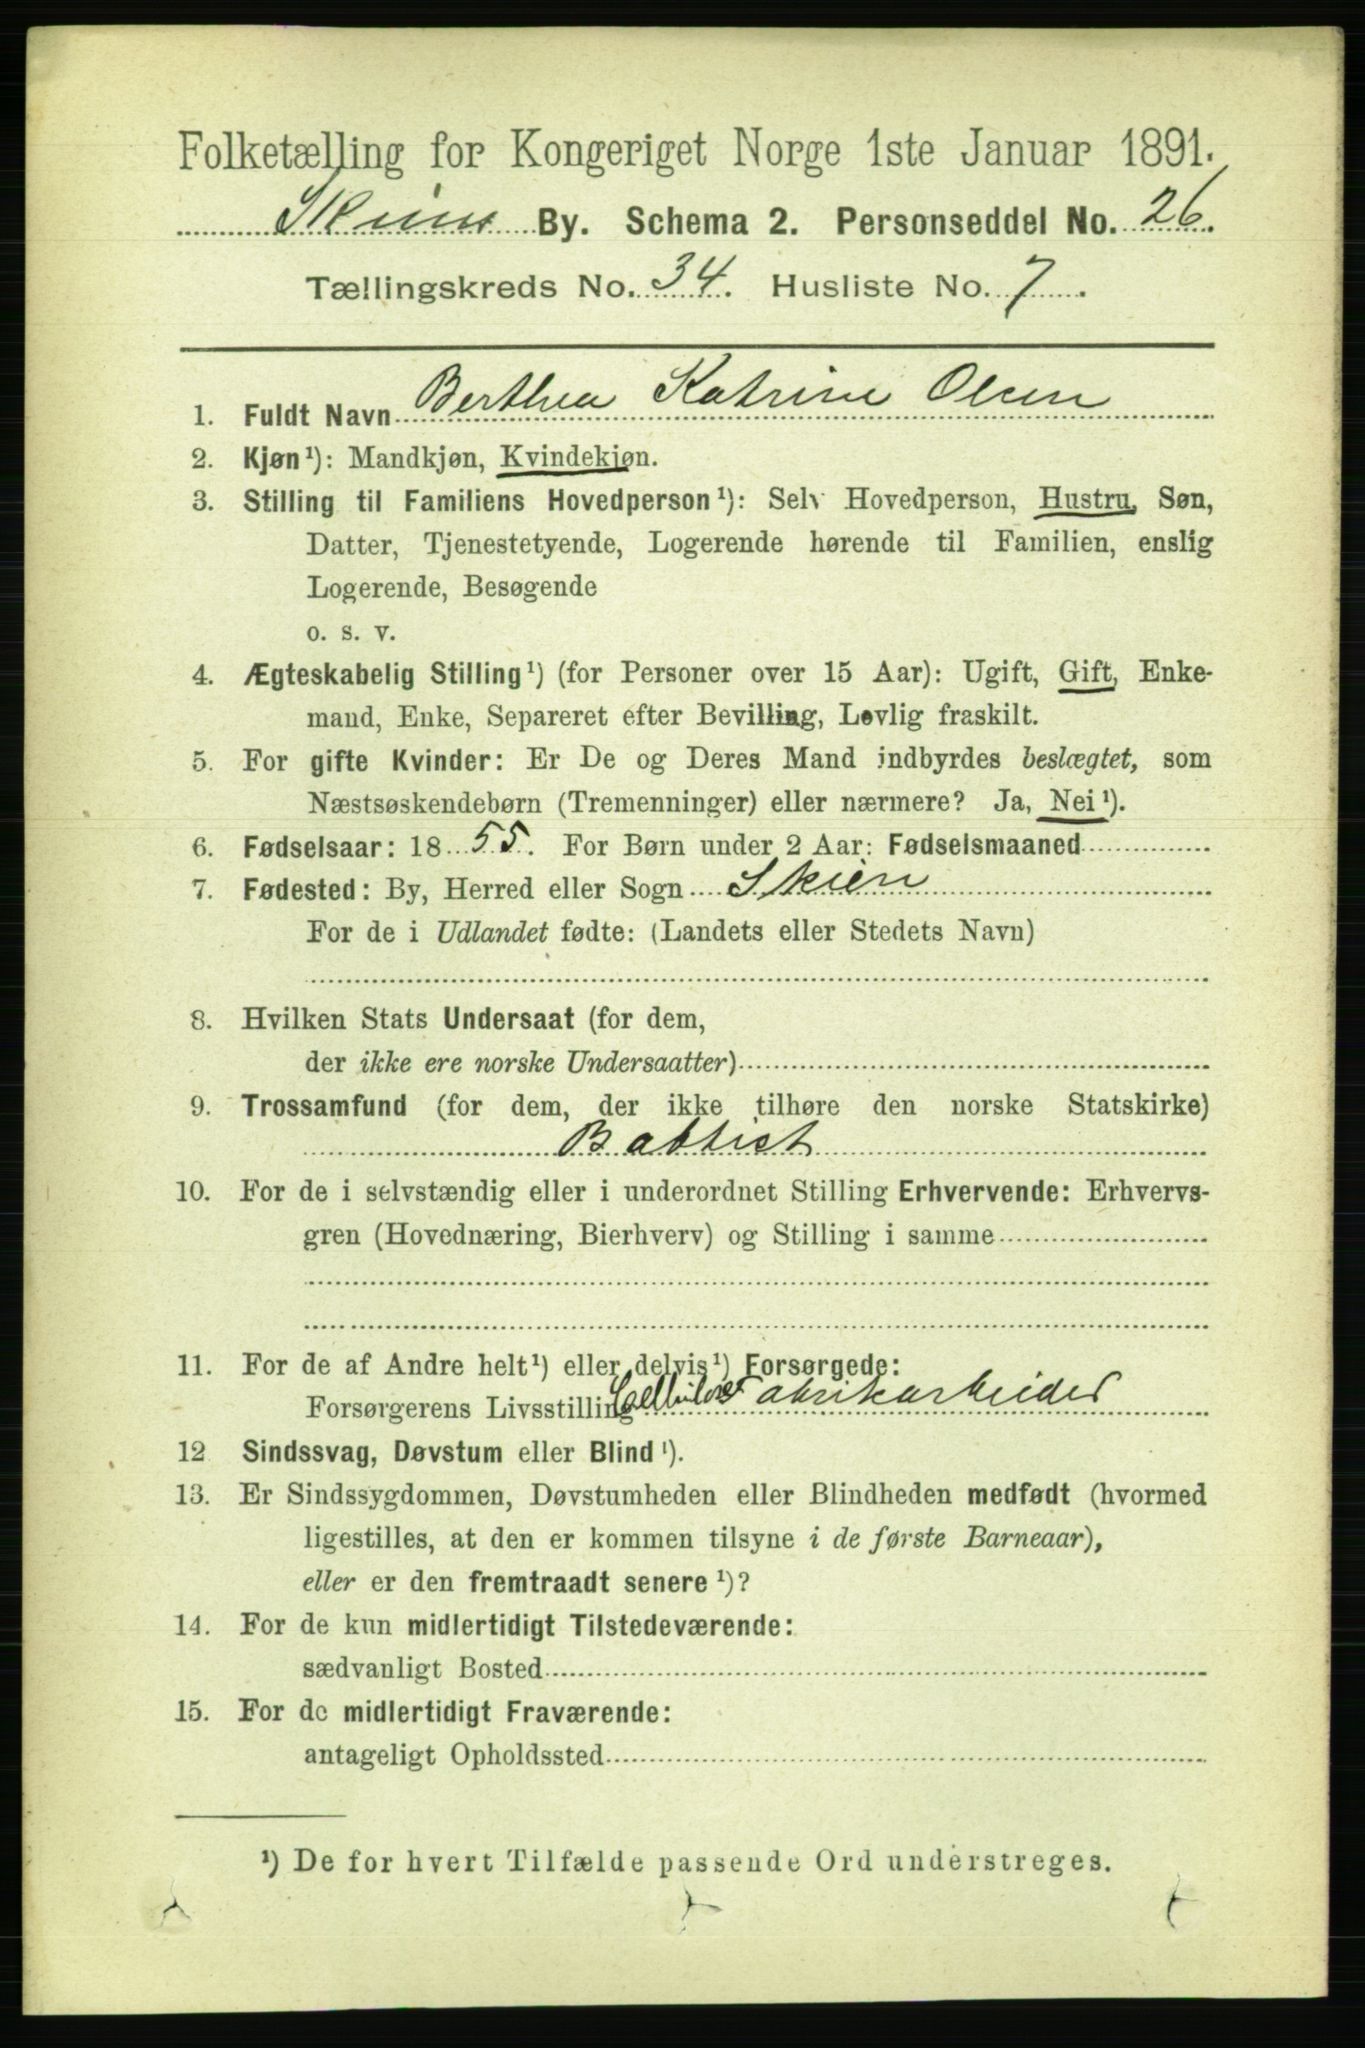 Folketælling for Kongeriget Norge 1ste Januar 1891.
Skiens By. Schema 2. Personseddel No. 26.
Tællingskreds No. 34. Husliste No. 7.
1. Fuldt Navn Berthea Katrine Olsen
2. Kjøn¹): Mandkjøn, Kvindekjøn.
3. Stilling til Familiens Hovedperson¹): Selv Hovedperson, Hustru, Søn,
Datter, Tjenestetyende, Logerende hørende til Familien, enslig
Logerende, Besøgende
o. s. v.
4. Ægteskabelig Stilling¹) (for Personer over 15 Aar): Ugift, Gift, Enke-
mand, Enke, Separeret efter Bevilling, Lovlig fraskilt.
5. For gifte Kvinder: Er De og Deres Mand indbyrdes beslægtet, som
Næstsøskendebørn (Tremenninger) eller nærmere? Ja, Nei¹).
6. Fødselsaar: 1855. For Børn under 2 Aar: Fødselsmaaned
7. Fødested: By, Herred eller Sogn Skien
For de i Udlandet fødte: (Landets eller Stedets Navn)
8. Hvilken Stats Undersaat (for dem,
der ikke ere norske Undersaatter)
9. Trossamfund (for dem, der ikke tilhøre den norske Statskirke)
Babtist
10. For de i selvstændig eller i underordnet Stilling Erhvervende: Erhvervs-
gren (Hovednæring, Bierhverv) og Stilling i samme
11. For de af Andre helt¹) eller delvis¹) Forsørgede:
Forsørgerens Livsstilling Fabrikarbeider
12 Sindssvag, Døvstum eller Blind¹).
13. Er Sindssygdommen, Døvstumheden eller Blindheden medfødt (hvormed
ligestilles, at den er kommen tilsyne i de første Barneaar),
eller er den fremtraadt senere¹)?
14. For de kun midlertidigt Tilstedeværende:
sædvanligt Bosted
15. For de midlertidigt Fraværende:
antageligt Opholdssted
¹) De for hvert Tilfælde passende Ord understreges.